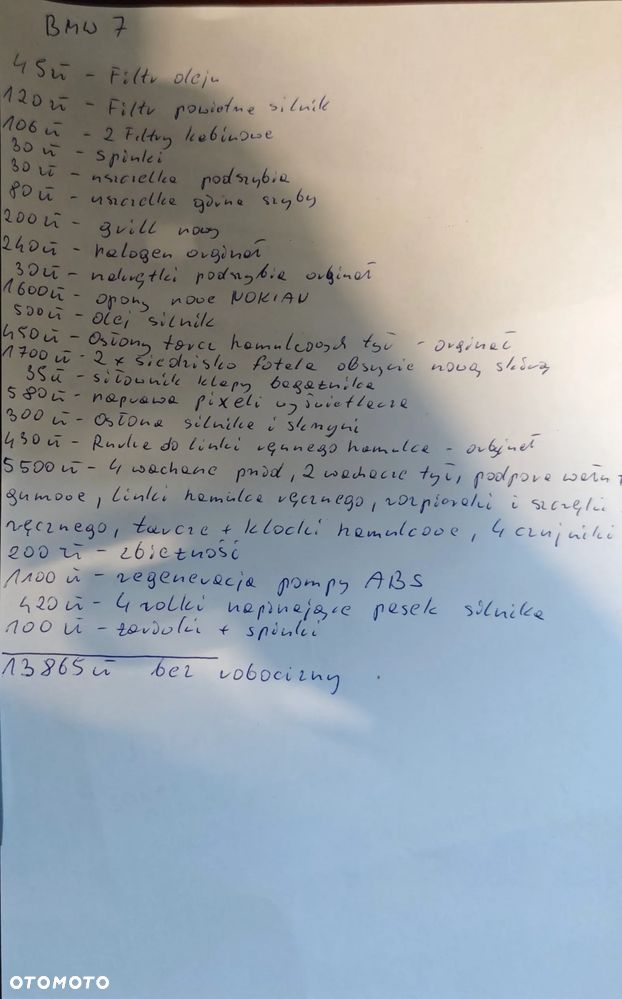 BMW 7
45 zł - Filtr oleju
120 zł - Filtr powietrza silnik
106 zł - 2 Filtry kabinowe
30 zł - spinki
30 zł - uszczelka podszybia
80 zł - uszczelka górna szyby
200 zł - grill nowy
240 zł - halogen orginał
30 zł - nakrętki podszybia orginał
1600 zł - opony nowe NOKIAN
500 zł - olej silnik
450 zł - Osłony tarcz hamulcowych tył - orginał
1700 zł - 2 x siedzisko fotela obszycie nową skórą
35 zł - siłownik klapy bagażnika
580 zł - naprawa pixeli wyświetlacza
300 zł - Osłona silnika i skrzyni
430 zł - Rurka do linki ręcznego hamulca - orginał
5500 zł - 4 wachacze przód, 2 wachacze tył, podpora wału +
gumowe, linki hamulca ręcznego, rozpieraki i szczęki
ręcznego, tarcze + klocki hamulcowe, 4 czujniki
200 zł - zbieżność
1100 zł - regeneracja pompy ABS
420 zł - 4 rolki napinające pasek silnika
100 zł - żarówki + spinki
13865 zł bez robocizny
OTOMOTO